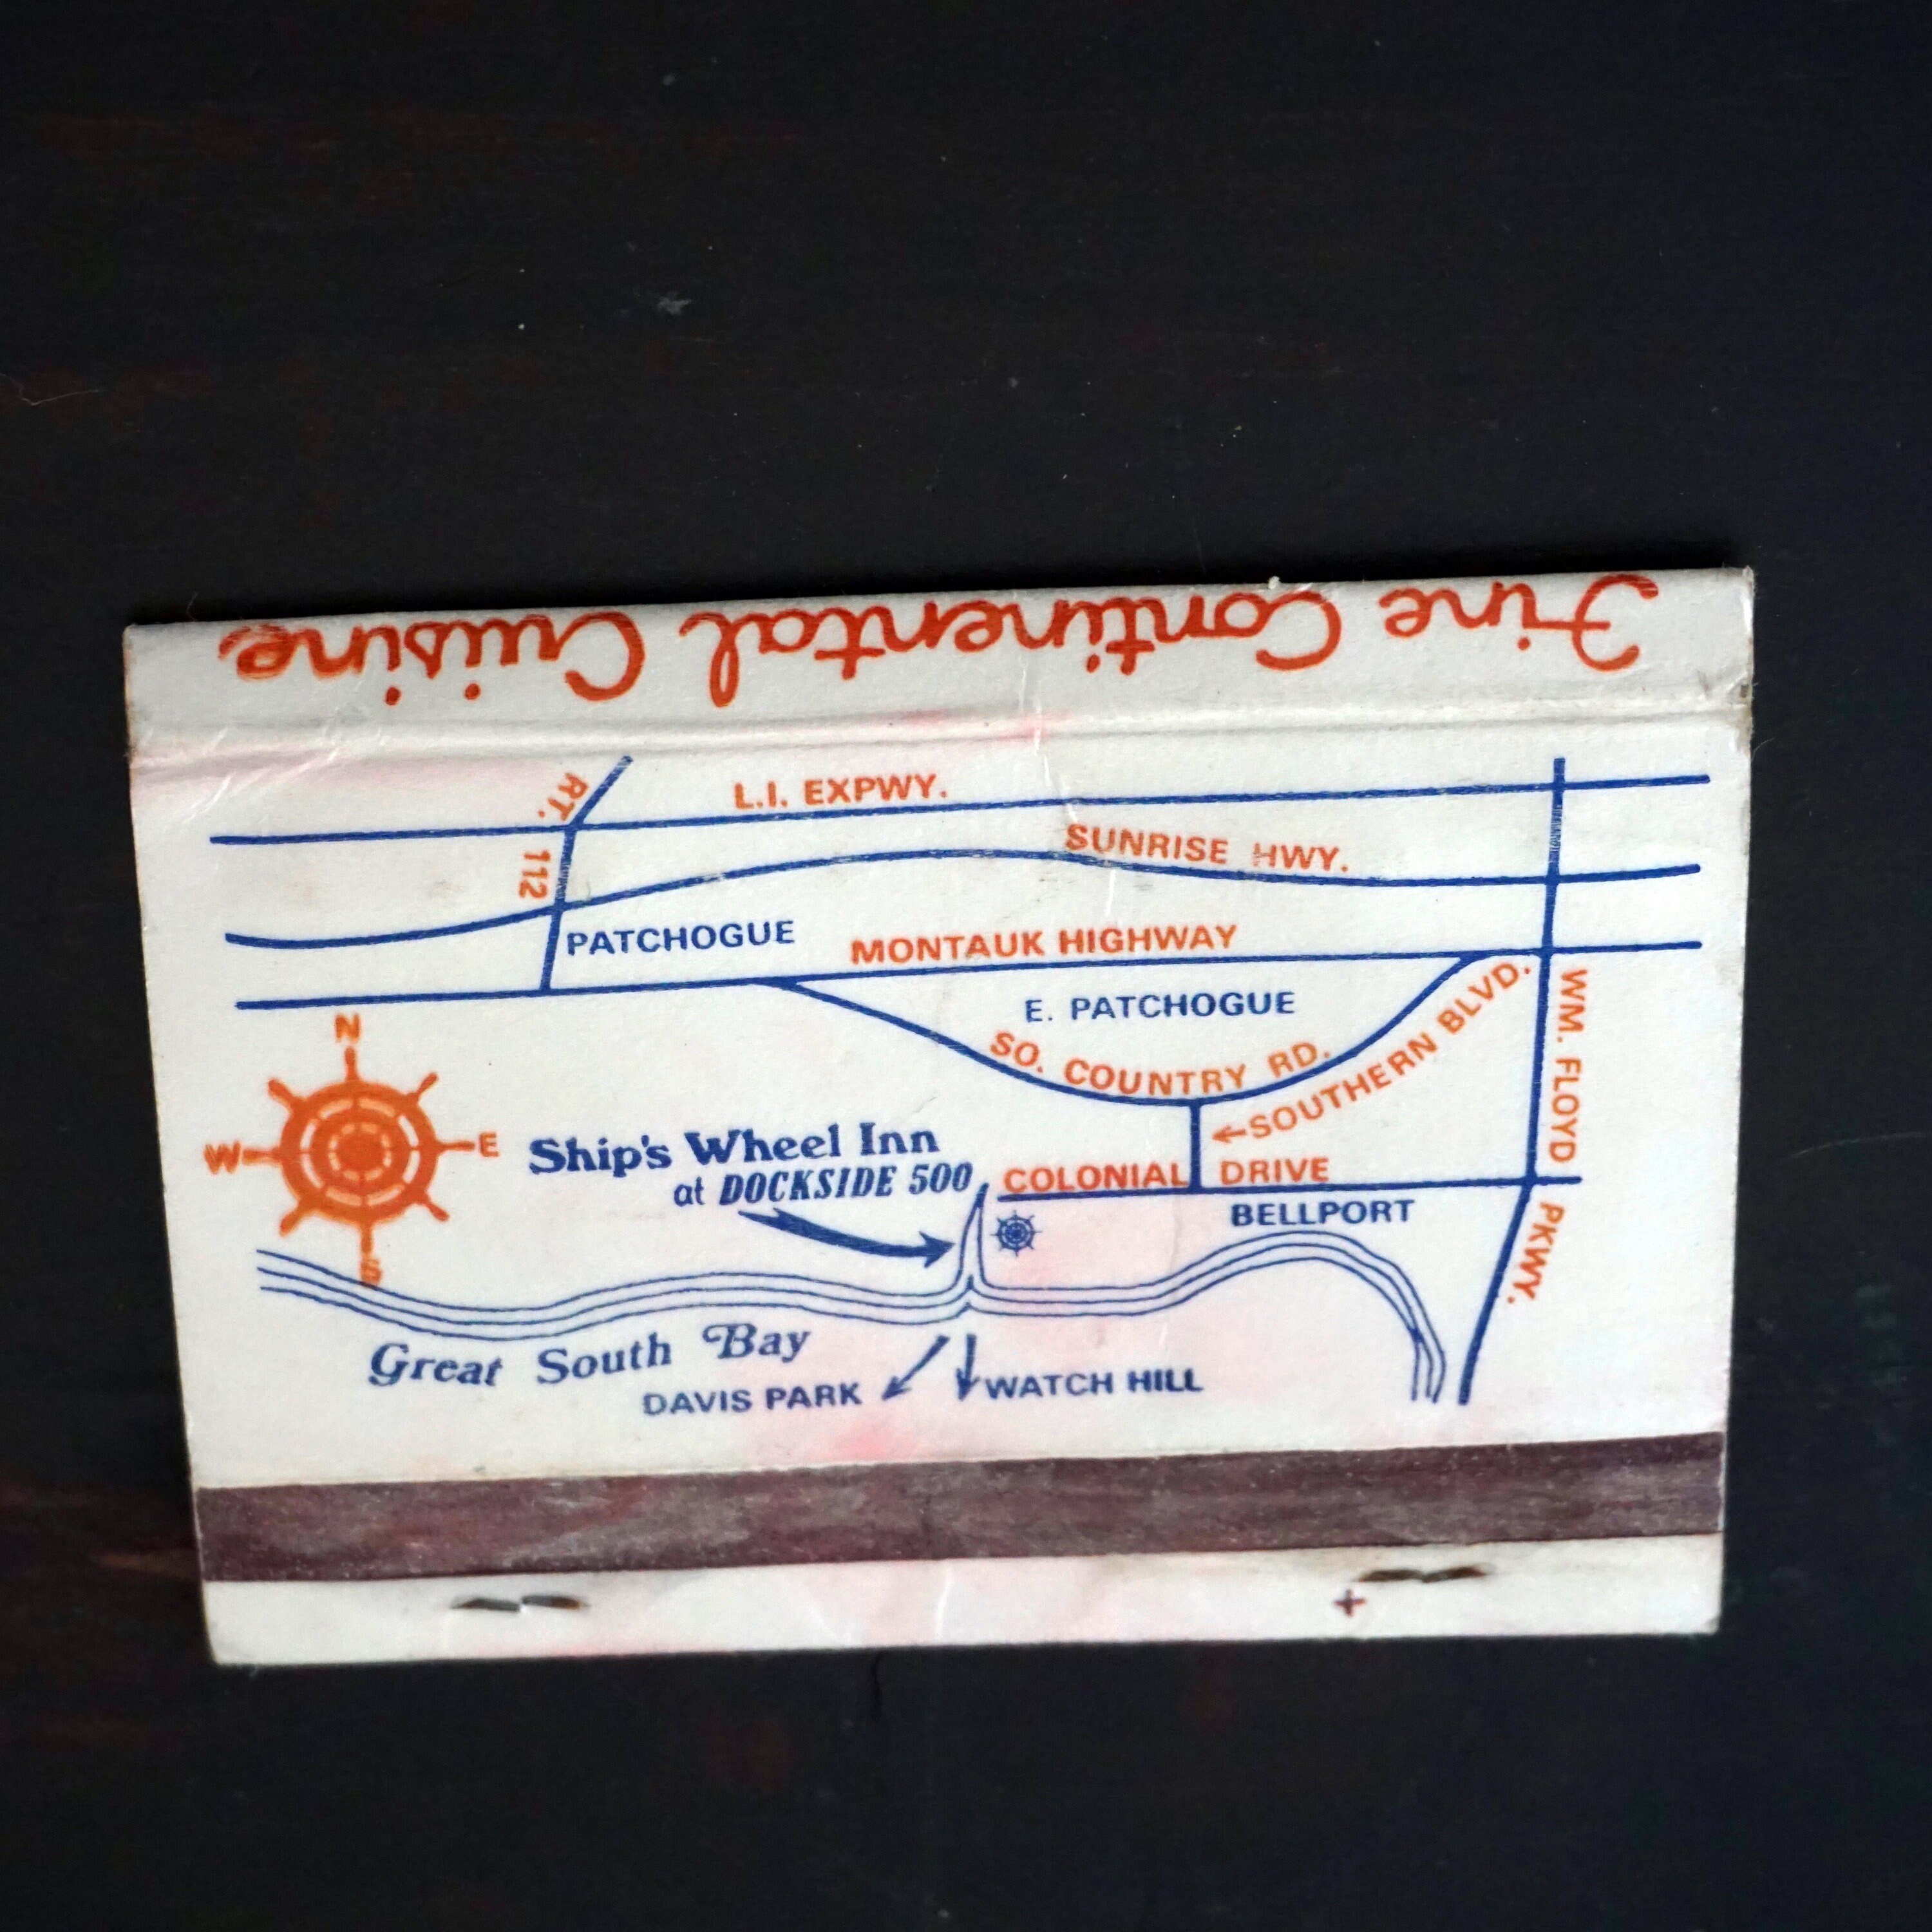 Fine Continental Cuisine
RT. 112
L.I. EXPWY.
SUNRISE HWY.
PATCHOGUE
MONTAUK HIGHWAY
E. PATCHOGUE
SO. COUNTRY RD.
←SOUTHERN BLVD.
WM. FLOYD PKWY.
N
W
E
S
Ship's Wheel Inn
at DOCKSIDE 500
COLONIAL DRIVE
BELLPORT
Great South Bay
DAVIS PARK
WATCH HILL